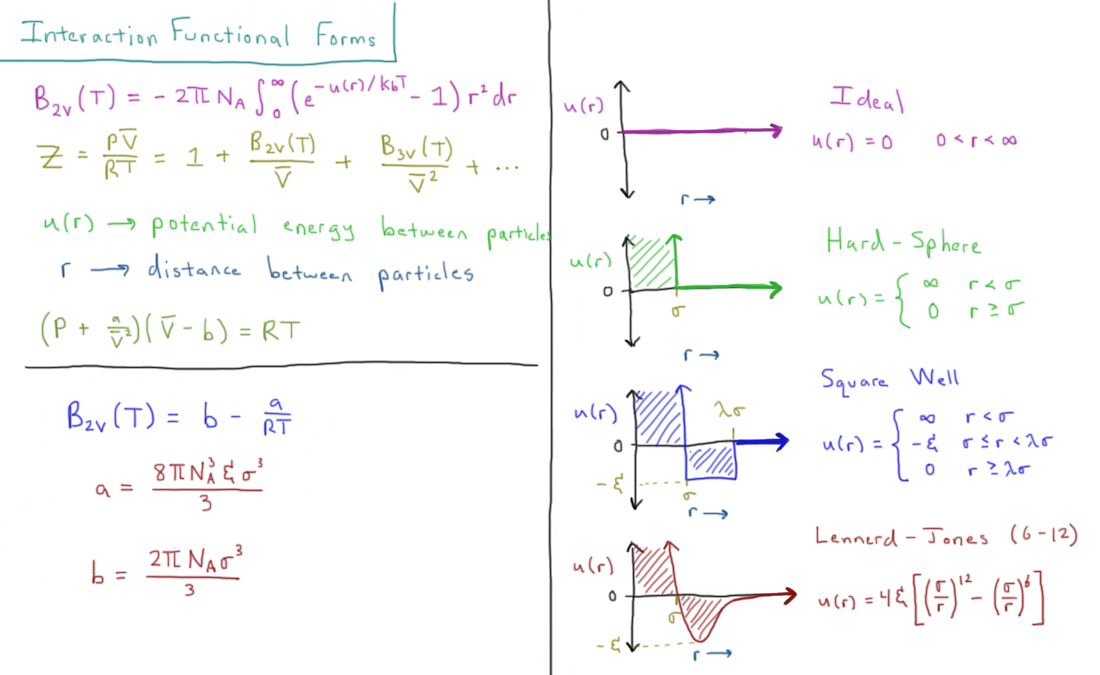 Interaction Functional Forms
B₂ᵥ(T) = - 2π N_A ∫₀^∞ (e^(-u(r)/k_bT) - 1) r² dr
Z = PV̅/RT = 1 + B₂ᵥ(T)/V̅ + B₃ᵥ(T)/V̅² + ...
u(r) → potential energy between particles
r → distance between particles
(P + a/V̅²)(V̅ - b) = RT
B₂ᵥ(T) = b - a/RT
a = 8π N_A³ ξ σ³/3
b = 2π N_A σ³/3
u(r)
0
r →
Ideal
u(r) = 0 0 < r < ∞
u(r)
0
σ
r →
Hard-Sphere
u(r) = { ∞ r < σ
0 r ≥ σ
u(r)
λσ
0
-ξ
σ
r →
Square Well
u(r) = { ∞ r < σ
-ξ σ ≤ r < λσ
0 r ≥ λσ
u(r)
0
σ
-ξ
r →
Lennerd-Jones (6-12)
u(r) = 4ξ [(σ/r)¹² - (σ/r)⁶]